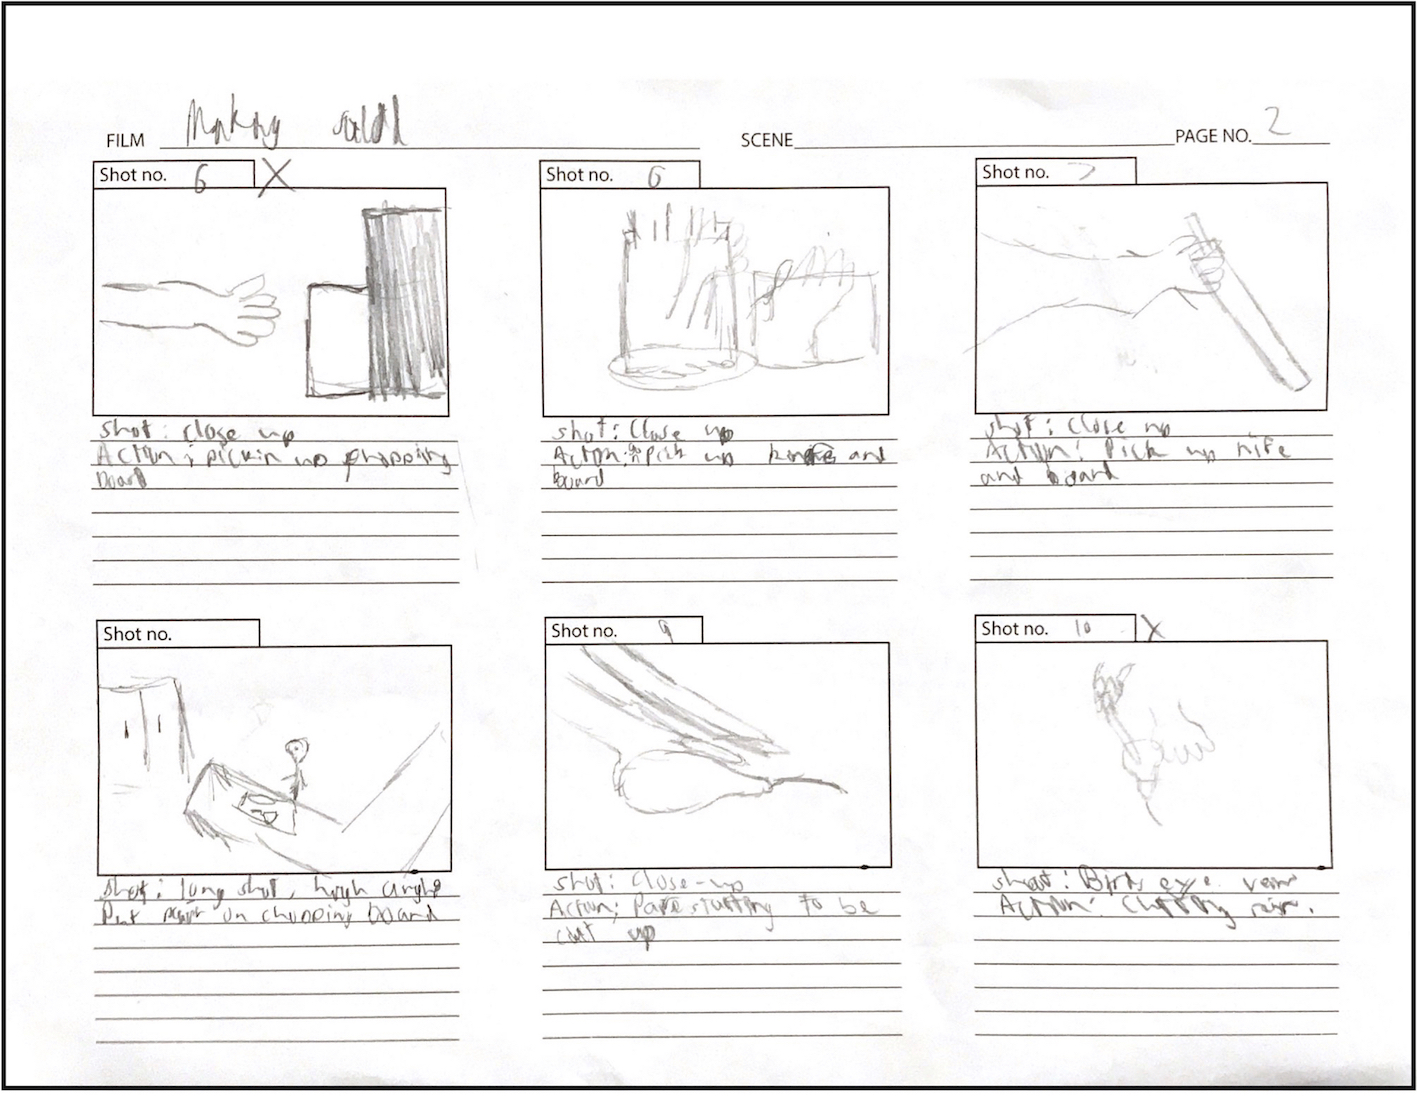 FILM Making salad
SCENE
PAGE NO. 2
Shot no. 6 X
shot: close up
Action: pickin up chopping
board
Shot no. 6
shot: Close up
Action: Pick up knife and
board
Shot no. 7
shot: close up
Action: Pick up nife
and board
Shot no.
shot: long shot, high angle
Put on chopping board
Shot no. 9
shot: close-up
Action: starting to be
cut up
Shot no. 10 X
shot: Birds eye
Action: Cutting